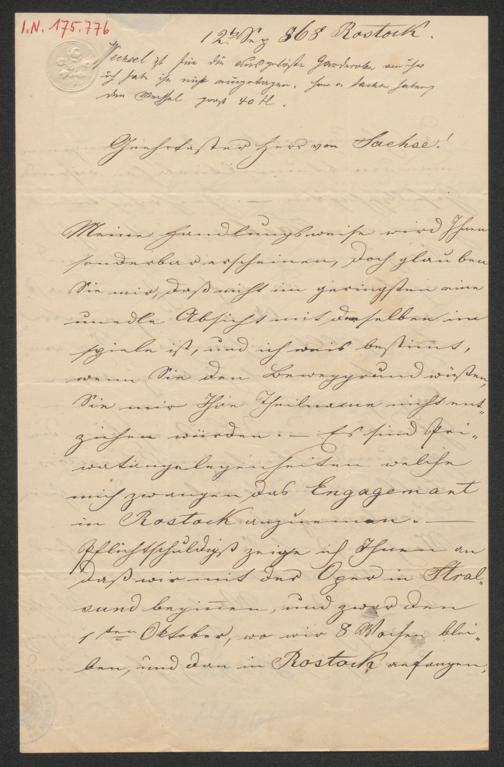 I.N. 175.776
12ten Sep 868 Rostock.
Wechsel ist für die ausgelöste Garderobe
ich habe ihn nicht
den Wechsel 40 fl.
Geehrtester Herr von Sachse!
Meine Handlungsweise wird Ihnen
sonderbar erscheinen, doch glauben
Sie mir, daß nicht im geringsten eine
unedle Absicht mit derselben im
spiele ist, und ich weis bestimt,
wenn Sie den Beweggrund wüßten,
Sie mir Ihre Theilname nicht ent-
ziehen würden. — Es sind Pri-
vatangelegenheiten welche
mich zwangen das Engagemant
in Rostock anzunemen. —
Pflichtschuldigst zeige ich Ihnen an
daß wir mit der Oper in Stral-
sund beginen, und zwar den
1ten Oktober, wo wir 8 Wochen blei-
ben, und dan in Rostock anfangen,